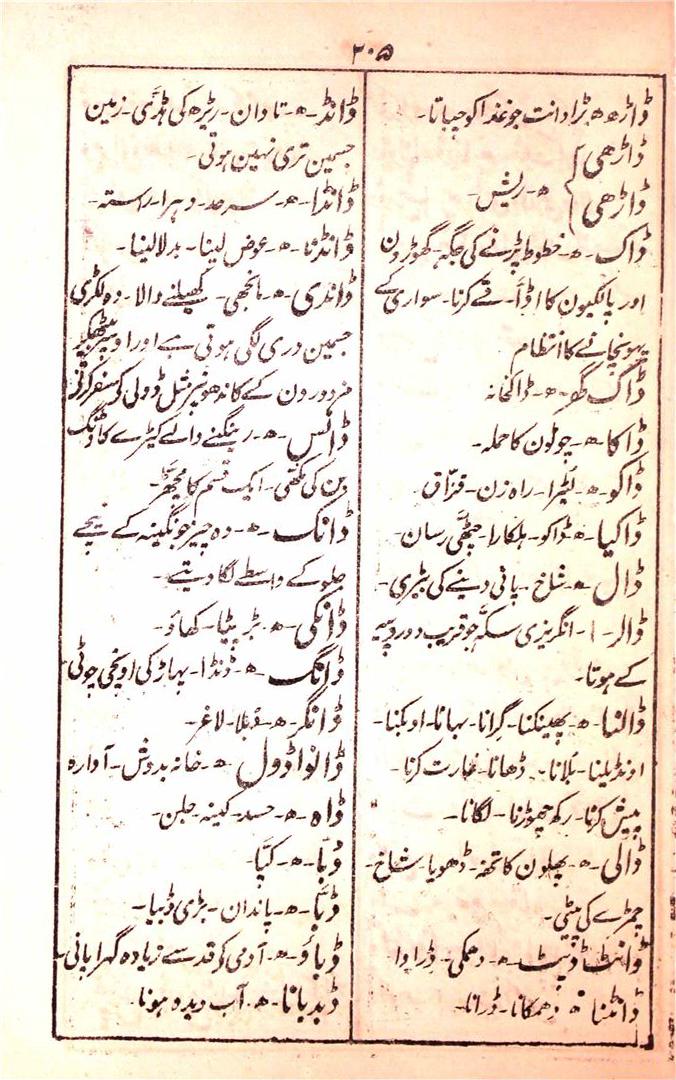 ۲۰۵
ڈاڑھ ھ بڑا دانت جو غذا کو چباتا۔
ڈاڑھی
ڈاڑھی } ھ۔ ریش۔
ڈاک۔ ھ۔ خطوط پڑنے کی جگہ۔ گھوڑون
اور پالکیون کا اڈا۔ قے کرنا۔ سواری کے
پہونچانے کا انتظام
ڈاک گھر۔ ھ۔ ڈاکخانہ
ڈاکا۔ ھ۔ چورون کا حملہ۔
ڈاکو۔ ھ۔ لٹیرا۔ راہ زن۔ قزاق۔
ڈاکیا۔ ھ۔ ڈاکو۔ ہلکارا۔ چٹھی رسان۔
ڈال۔ ھ۔ شاخ۔ پانی دینے کی بیڑی۔
ڈالر۔ ا۔ انگریزی سکہ جو قریب دو روپیہ
کے ہوتا۔
ڈالنا۔ ھ۔ پھینکنا۔ گرانا۔ بہانا۔ اوبکنا۔
اونڈیلنا۔ ہلانا۔ ڈھانا۔ غارت کرنا۔
پیش کرنا۔ رکھ چھوڑنا۔ لگانا۔
ڈالی۔ ھ۔ پھلون کا تحفہ۔ ڈھویا۔ شاخ۔
چمڑے کی پیٹی۔
ڈانٹ ڈپٹ۔ ھ۔ دھمکی۔ ڈراوا۔
ڈانٹنا ھ۔ دھمکانا۔ ڈرانا۔
ڈانڈ۔ ھ۔ تاوان۔ ریڑھ کی ہڈی۔ زمین
جسمین تری نہین ہوتی۔
ڈانڈا۔ ھ۔ سرحد۔ دہرا۔ راستہ۔
ڈانڈنا۔ ھ۔ عوض لینا۔ بدلا لینا۔
ڈانڈی۔ ھ۔ مانجھی۔ کھیلنے والا۔ وہ لکڑی
جسمین دری لگی ہوتی ہے اور اوسپر بیٹھکر
مزدورون کے کاندھونپر مثل ڈولی کے سفر کرتے
ڈانس۔ ھ۔ رینگنے والے کیڑے کا ڈنگ
بن کی مکھی۔ ایک قسم کا مچھر۔
ڈانک۔ ھ۔ وہ چیز جو نگینہ کے نیچے
جلو کے واسطے لگا دیتے۔
ڈانکی۔ ھ۔ بڑ پیٹا۔ کھاؤ۔
ڈانگ۔ ھ۔ ڈنڈا۔ پہاڑ کی اونچی چوٹی۔
ڈانگر۔ ھ۔ دُبلا۔ لاغر۔
ڈانواڈول۔ ھ۔ خانہ بدوش۔ آوارہ
ڈاہ۔ ھ۔ حسد۔ کینہ۔ جلن۔
ڈبا۔ ھ۔ کپا۔
ڈبا۔ ھ۔ پاندان۔ بڑی ڈبیا۔
ڈباؤ۔ ھ۔ آدمی کو قد سے زیادہ گہرا پانی۔
ڈبڈبانا۔ ھ۔ آب دیدہ ہونا۔